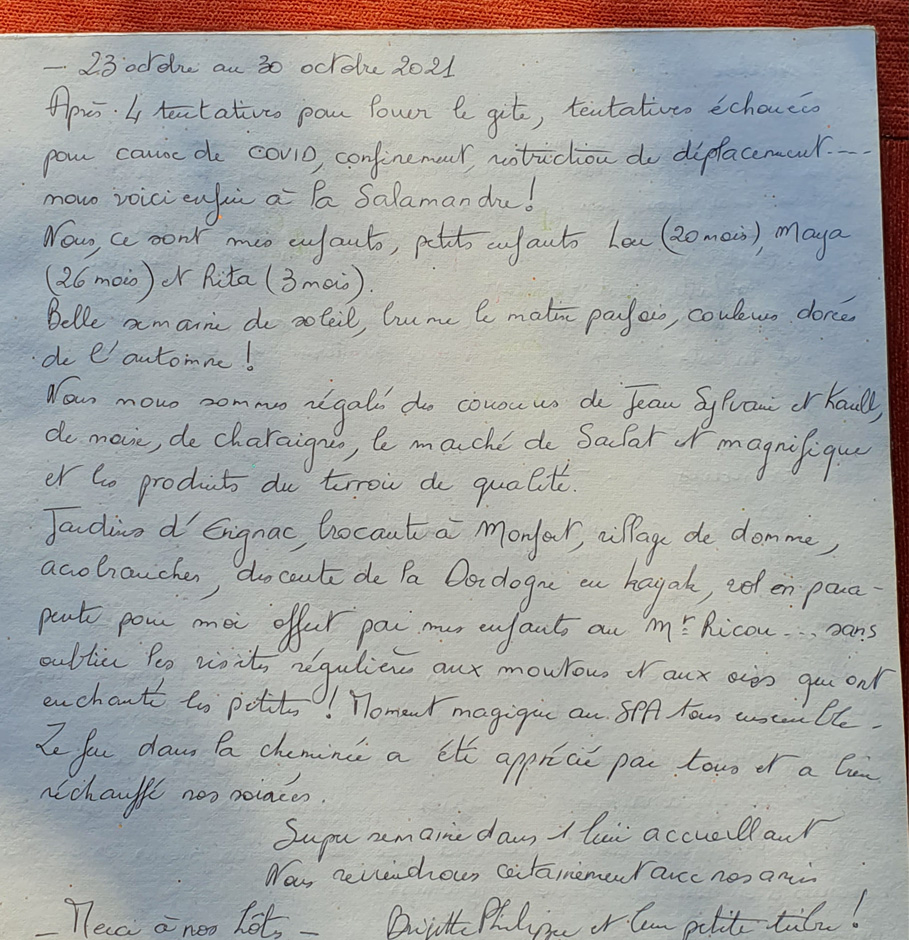 - 23 octobre au 30 octobre 2021
Après 4 tentatives pour louer le gîte, tentatives échouées
pour cause de COVID, confinement, restriction de déplacement ----
nous voici enfin à la Salamandre !
Nous, ce sont mes enfants, petits enfants Lou (20 mois), Maya
(26 mois) et Rita (3 mois).
Belle semaine de soleil, brume le matin parfois, couleurs dorées
de l'automne !
Nous nous sommes régalés du couscous de Jean Sylvain et
de noix, de chataignes, le marché de Sarlat et magnifique
et les produits du terroir de qualité.
Jardins d'Erignac, brocante à Monfort, village de domme,
acrobranches, descente de la Dordogne en kayak, vol en para-
pente pour moi offert par mes enfants au Mr Ricou ... sans
oublier les visites régulières aux moutons et aux oies qui ont
enchanté les petites ! Moment magique au SPA tous ensemble.
Le feu dans la cheminée a été apprécié par tous et a bien
réchauffé nos soirées.
Super semaine dans 1 lieu accueillant
Nous reviendrons certainement avec nos amis
- Merci à nos hôtes - Brigitte Philippe et leur petite tribu !